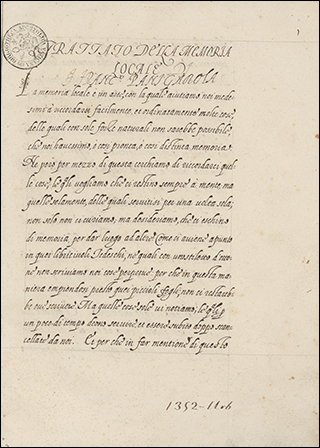 TRATTATO DELLA MEMORIA
LOCALE
DI FRANC. PANIGAROLA
La memoria locale è un arte, con la quale aiutiamo noi mede-
simi à ricordarci facilmente, et ordinatamente molte cose,
delle quali con le sole forze naturali non sarebbe possibile
che noi havessimo, o così pronta, o così distinta memoria.
Ne però per mezzo di questa cerchiamo di ricordarci quel-
le cose, le q̃li vogliamo, che ci restino sempre à mente, ma
quelle solamente, delle quali serviti si per una volta sola,
non solo non ci curiamo, ma desideriamo, che ci eschino
di memoria, per dar luogo al altre. Come ci aviene apunto
in quei libretti Tedeschi, ne quali con uno stiletto d'otto-
ne non scriviamo noi cose perpetue, per che in questa ma-
niera empiendosi presto quei piccioli fogli, non ci restareb-
be ove scrivere. Ma quelle cose sole vi notiamo, le q̃li p
un poco di tempo deono servire, et essere subito doppo scan-
cellate da noi. E per che in far mentione di questo
1352-11ob